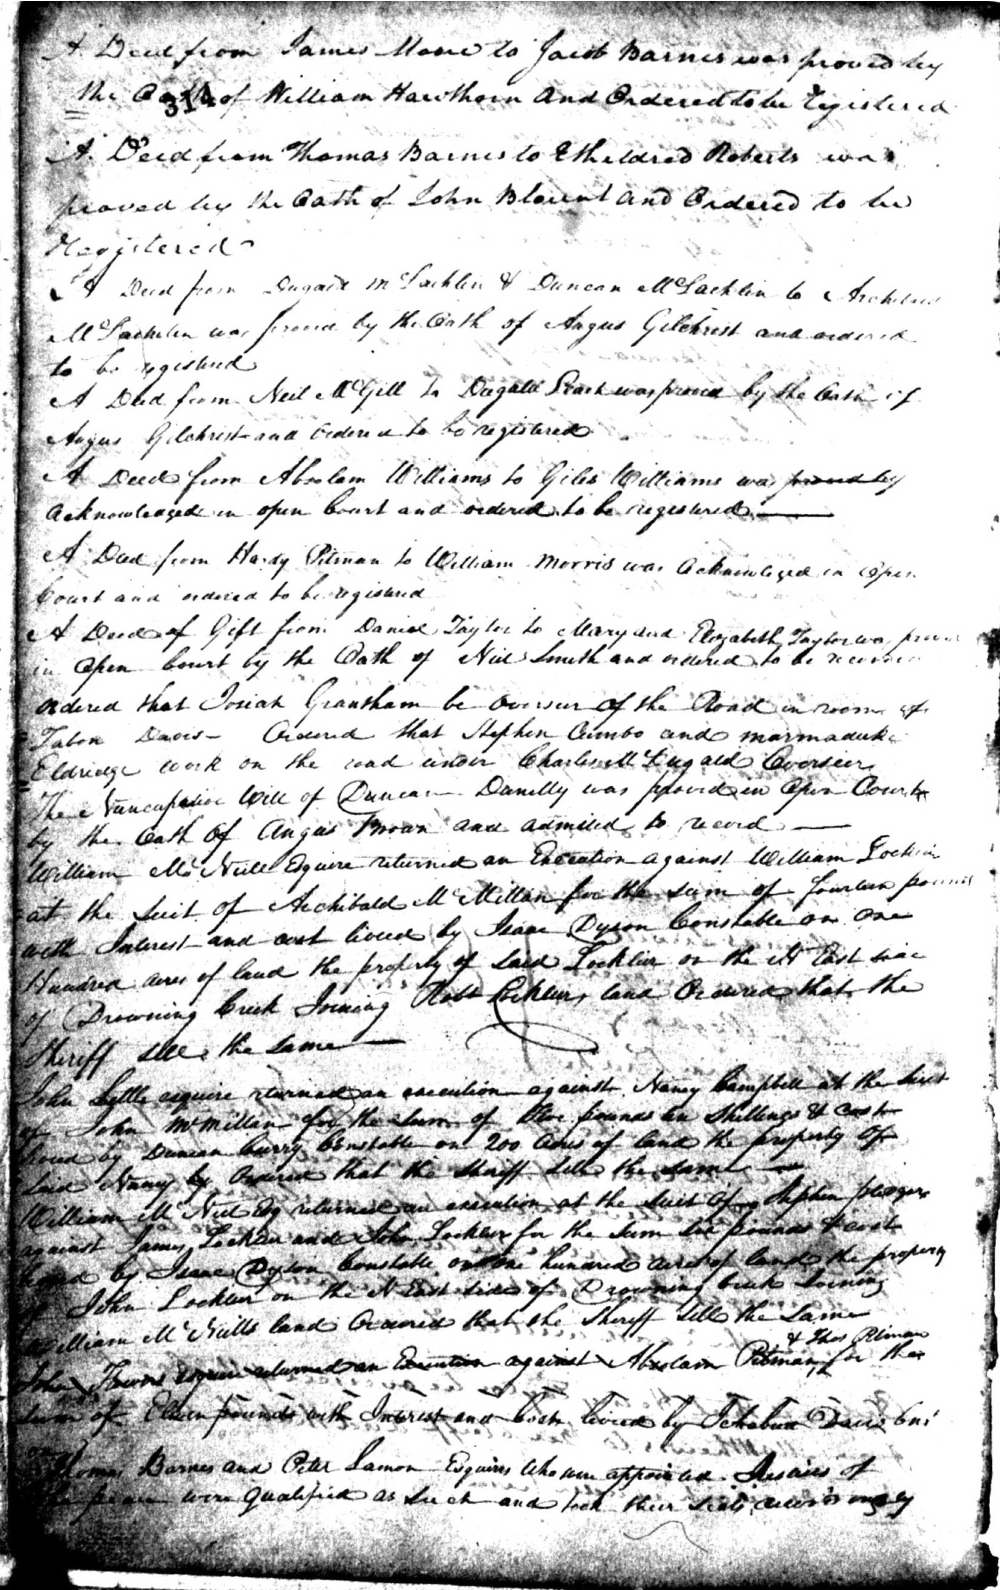 A Deed from James Moore to Jacob Barnes was proved by
the Oath of William Hawthorn and Ordered to be registered
314
A Deed from Thomas Barnes to Etheldred Roberts was
proved by the Oath of John Blount and Ordered to be
Registered
A Deed from Dugald McLachlin & Duncan McLachlin to Archibald
McLachlin was proved by the Oath of Angus Gilchrist and ordered
to be registered
A Deed from Neil McGill to Dugald was proved by the Oath of
Angus Gilchrist and Ordered to be registered
A Deed from Absolam Williams to Giles Williams was proved by
Acknowledged in open Court and ordered to be registered
A Deed from Hardy Pitman to William Morris was Acknowledged in Open
Court and ordered to be registered
A Deed of Gift from Daniel Taylor to Mary and Elizabeth Taylor was proved
in Open Court by the Oath of Neil Smith and ordered to be
ordered that Josiah Grantham be overseer of the Road in room of
Davis Ordered that Stephen Cumbo and Marmaduke
Eldridge work on the road under Charles McDugald Overseer
The Nuncupative Will of Duncan Danelly was proved in Open Court
by the Oath of Angus Brown and admitted to record
William McNeill Esquire returned an Execution against William Locklier
at the Suit of Archibald McMillan for the sum of fourteen pounds
with Interest and cost levied by Isaac Dyson Constable on one
Hundred acres of land the property of Said Locklier on the N East side
of Drowning Creek Joining Robt Lockliers land Ordered that the
Sheriff sell the Same
John Lyttle esquire returned an execution against Nancy Campbell at the Suit
of John McMillan for the Sum of five pounds ten Shillings & cost
levied by Duncan Curry Constable on 200 Acres of land the property of
Said Nancy by Ordered that the Sheriff Sell the same
William McNeil Esq returned an execution at the Suit of Stephen
against James Locklier and John Locklier for the Sum Six pounds & cost
levied by Isaac Dyson Constable on one hundred acres of land the property
of John Locklier on the N East side of Drowning creek Joining
William McNeills land Ordered that the Sheriff Sell the Same
& Thos Pitman
John esquire returned an Execution against Absolam Pitman for the
Sum of Eleven pounds with Interest and Costs levied by Davis Cons
Thomas Barnes and Peter Lamon Esquires who were appointed Justices of
the peace were Qualified as such and took their seats accordingly